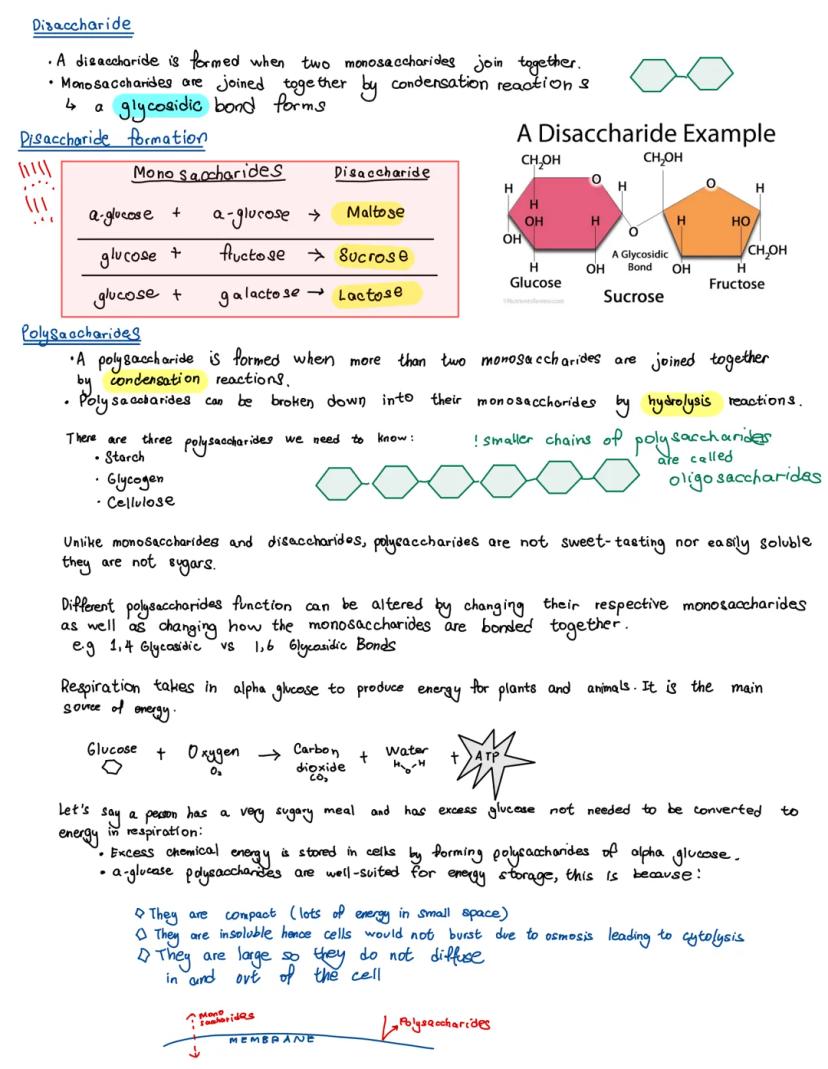 Disaccharide
• A disaccharide is formed when two monosaccharides join together.
• Monosaccharides are joined together by condensation reactions
↳ a glycosidic bond forms
Disaccharide formation
Monosaccharides Disaccharide
a-glucose + a-glucose → Maltose
glucose + fructose → Sucrose
glucose + galactose → Lactose
A Disaccharide Example
CH₂OH CH₂OH
O H O H
H
H
OH H H HO
OH O
A Glycosidic
Bond
CH₂OH
H OH OH H
Glucose Fructose
Sucrose
Polysaccharides
• A polysaccharide is formed when more than two monosaccharides are joined together
by condensation reactions.
• Polysaccharides can be broken down into their monosaccharides by hydrolysis reactions.
There are three polysaccharides we need to know:
• Starch
• Glycogen
• Cellulose
! smaller chains of polysaccharides
are called
oligosaccharides
Unlike monosaccharides and disaccharides, polysaccharides are not sweet-tasting nor easily soluble
they are not sugars.
Different polysaccharides function can be altered by changing their respective monosaccharides
as well as changing how the monosaccharides are bonded together.
e.g 1,4 Glycosidic vs 1,6 Glycosidic Bonds
Respiration takes in alpha glucose to produce energy for plants and animals. It is the main
source of energy.
Glucose + Oxygen → Carbon + Water + ATP
dioxide
O₂ CO₂ H O H
Let's say a person has a very sugary meal and has excess glucose not needed to be converted to
energy in respiration:
• Excess chemical energy is stored in cells by forming polysaccharides of alpha glucose.
• a-glucose polysaccharides are well-suited for energy storage, this is because:
◇ They are compact (lots of energy in small space)
◇ They are insoluble hence cells would not burst due to osmosis leading to cytolysis
◇ They are large so they do not diffuse
in and out of the cell
Mono
saccharides
Polysaccharides
MEMBRANE